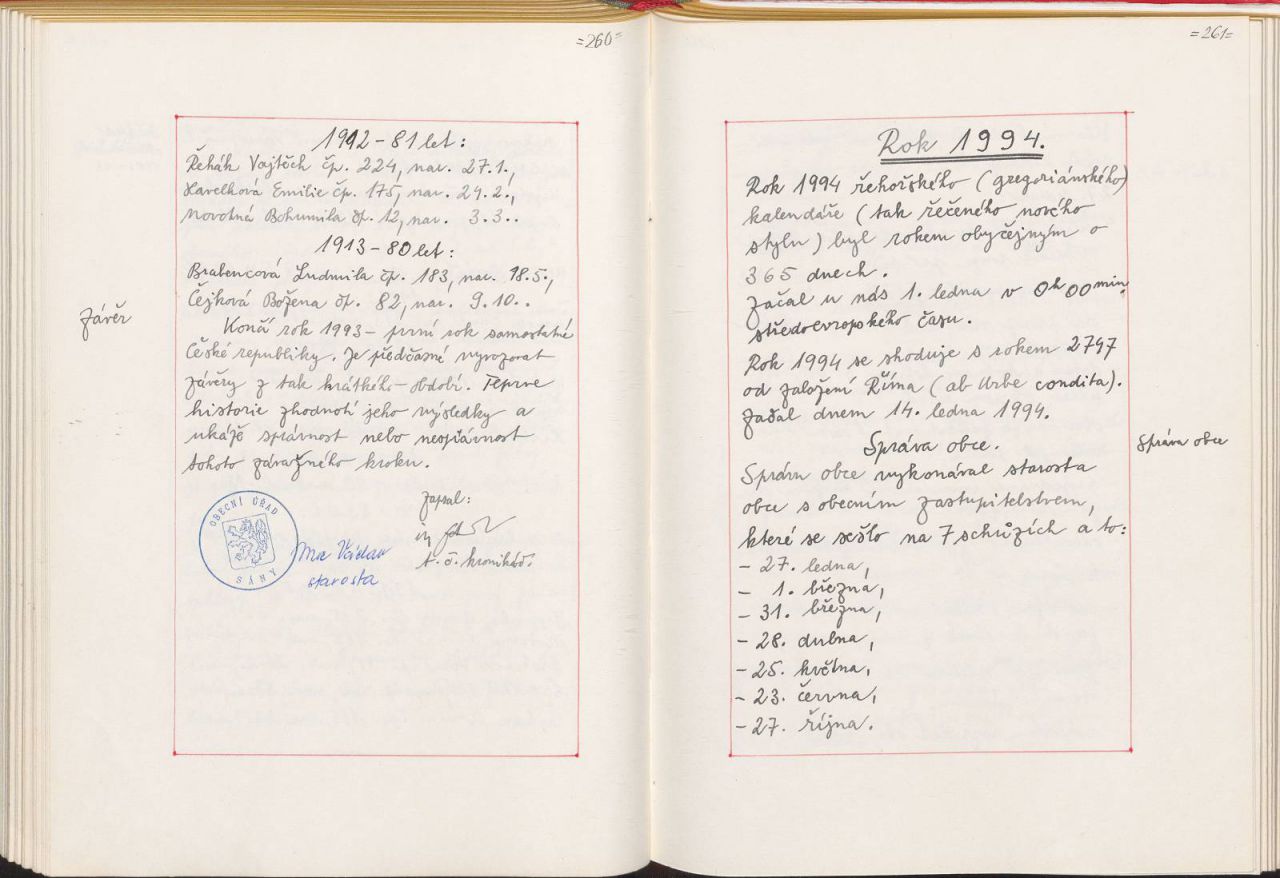 =260=
1912-81 let:
Řehák Vojtěch čp. 224, nar. 27.1.,
Havelková Emilie čp. 175, nar. 24.2.,
Novotná Bohumila čp. 12, nar. 3.3..
1913-80 let:
Brabencová Ludmila čp. 183, nar. 18.5.,
Čejková Božena čp. 82, nar. 9.10..
Závěr
Končí rok 1993 - první rok samostatné
České republiky. Je předčasné vyvozovat
závěry z tak krátkého období. Teprve
historie zhodnotí jeho výsledky a
ukáže správnost nebo nesprávnost
tohoto závažného kroku.
Zapsal:
OBECNÍ ÚŘAD
SÁNY
starosta
t.č. kronikář.
=261=
Rok 1994.
Rok 1994 řehořského (gregoriánského)
kalendáře (tak řečeného nového
stylu) byl rokem obyčejným o
365 dnech.
Začal u nás 1. ledna v 0h 00min.
středoevropského času.
Rok 1994 se shoduje s rokem 2747
od založení Říma (ab Urbe condita).
Začal dnem 14. ledna 1994.
Správa obce.
Správa obce
Správu obce vykonával starosta
obce s obecním zastupitelstvem,
které se sešlo na 7 schůzích a to:
- 27. ledna,
- 1. března,
- 31. března,
- 28. dubna,
- 25. května,
- 23. června,
- 27. října.